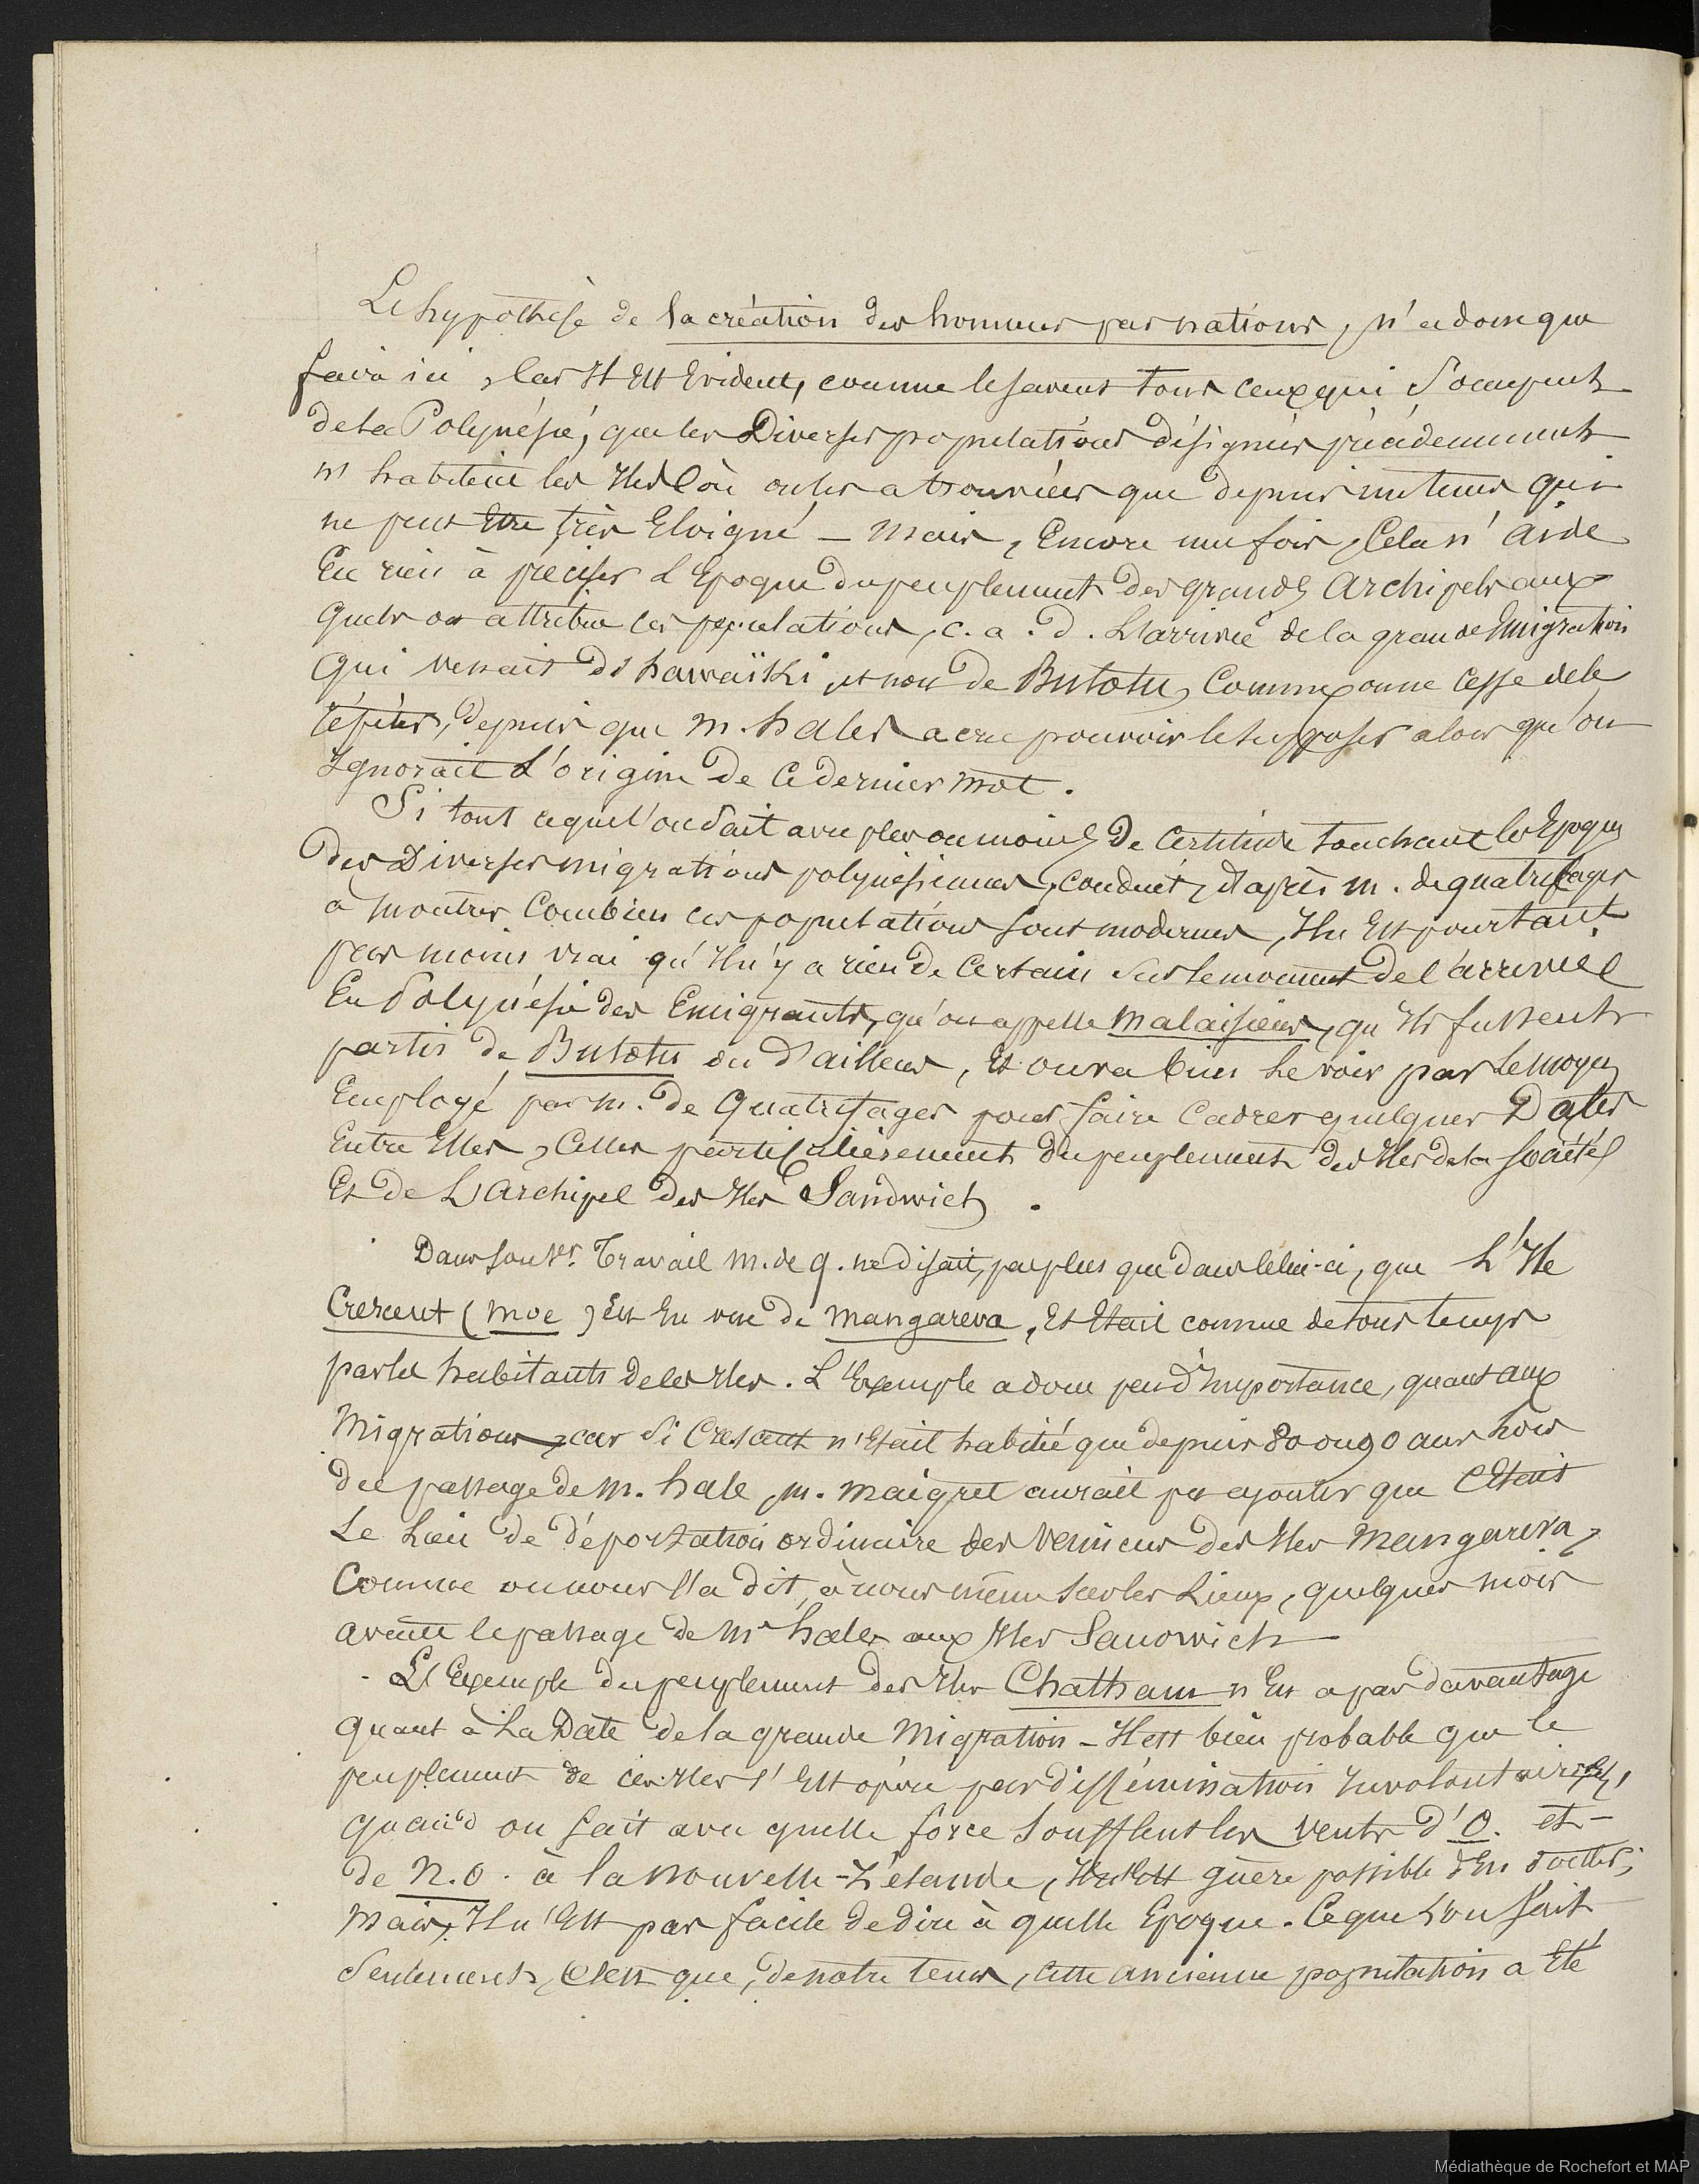 L'hypothèse de la création des hommes par nations, n'a donc que
faire ici, Car Il Est Evident, comme le savent tous ceux qui s'occupent
de la Polynésie, que les Diverses populations désignées précédemment
n'habitent les Iles où on les a trouvées que depuis un tems qui
ne peut Etre très Eloigné – Mais, Encore une fois, Cela n'aide
En rien à préciser l'Epoque du peuplement des grands Archipels aux
quels on attribue ces populations, c. a. d. L'arrivée de la grande Emigration
qui venait d'hawaïki, et non de Bulotu, Comme on ne cesse de le
répéter, depuis que M. hales a cru pouvoir le supposer alors qu'on
Ignorait L'origine de Ce dernier mot.
Si tout ce que l'on sait avec plus ou moins De Certitude touchant les Epoques
Des Diverses migrations polynésiennes, conduit, d'après M. de quatrefages
à Montrer Combien ces populations sont modernes, Il n'Est pourtant
pas moins vrai qu'Il n'y a rien De Certain sur le moment De l'arrivée
En Polynésie des Emigrants, qu'on appelle Malaisiens, qu'Ils fussent
partis de Bulotu ou d'ailleurs, Et on va bien le voir par Le moyen
Employé par M. De Quatrefages pour faire Cadrer quelques Dates
Entre Elles, Celles particulièrement du peuplement des Iles de la Société
Et de L'Archipel des Iles Sandwich.
Dans son 1er. Travail M. de q. ne disait, pas plus que dans celui-ci, que L'Ile
Crescent (Moe) Est En vue de Mangareva, Et Etait connue de tous temps
par les habitants de ces Iles. L'Exemple a donc peu d'Importance, quant aux
Migrations, car Si Crescent n'Etait habité que depuis 80 ou 90 ans hors
du passage de M. hale, M. Maigret aurait pu ajouter que C'Etait
Le Lieu de déportation ordinaire des Vaincus des Iles Mangareva,
Comme on nous l'a dit, à nous même sur les Lieux, quelques mois
avant le passage de Mr hales aux Iles Sandwich
- L'Exemple du peuplement des Iles Chatham n'En a pas davantage
quant à La Date de la grande Migration – Il est bien probable que le
peuplement de ces Iles s'Est opéré par dissémination Involontaire,
quand on sait avec quelle force soufflent les Vents d'O. et
de N.O. à la nouvelle-Zélande, Il n'Est guère possible d'En douter;
Mais, Il n'Est pas facile De dire à quelle Epoque. Ce que L'on sait
Seulement, C'Est que, de notre tems, cette ancienne population a Eté
Médiathèque de Rochefort et MAP